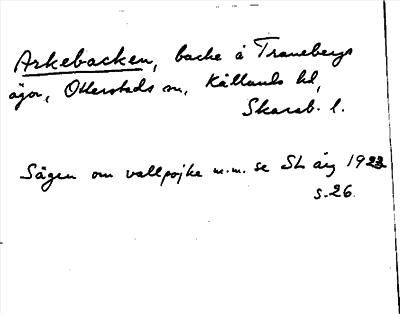 Arkebacken, backe å Tranebergs
ägor, Otterstads sn, Kållands hd,
Skarab. l.
Sägen om vallpojke m.m. se Sh årg 1923
s. 26.